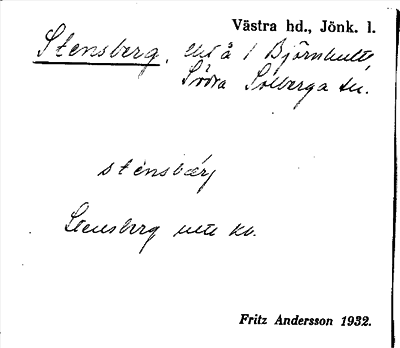 Västra hd., Jönk. l.
Stensberg, å / Björnhult,
Södra Solberga sn.
stensbærj
Stensberg kb.
Fritz Andersson 1932.